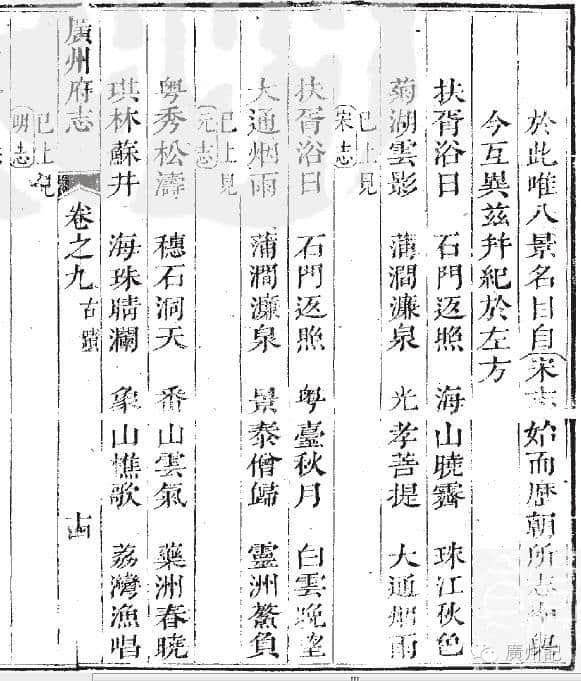 於此唯八景名目自宋志始而歷朝所志
今互異茲幷紀於左方
扶胥浴日 石門返照 海山曉霽 珠江秋色
菊湖雲影 蒲澗濂泉 光孝菩提 大通烟雨
已上見
宋志
扶胥浴日 石門返照 粵臺秋月 白雲晚望
大通烟雨 蒲澗濂泉 景泰僧歸 靈洲鰲負
已上見
元志
粵秀松濤 穗石洞天 番山雲氣 藥洲春曉
琪林蘇井 海珠晴瀾 象山樵歌 荔灣漁唱
廣州府志 卷之九 古蹟 十四
已上見
明志
廣州記